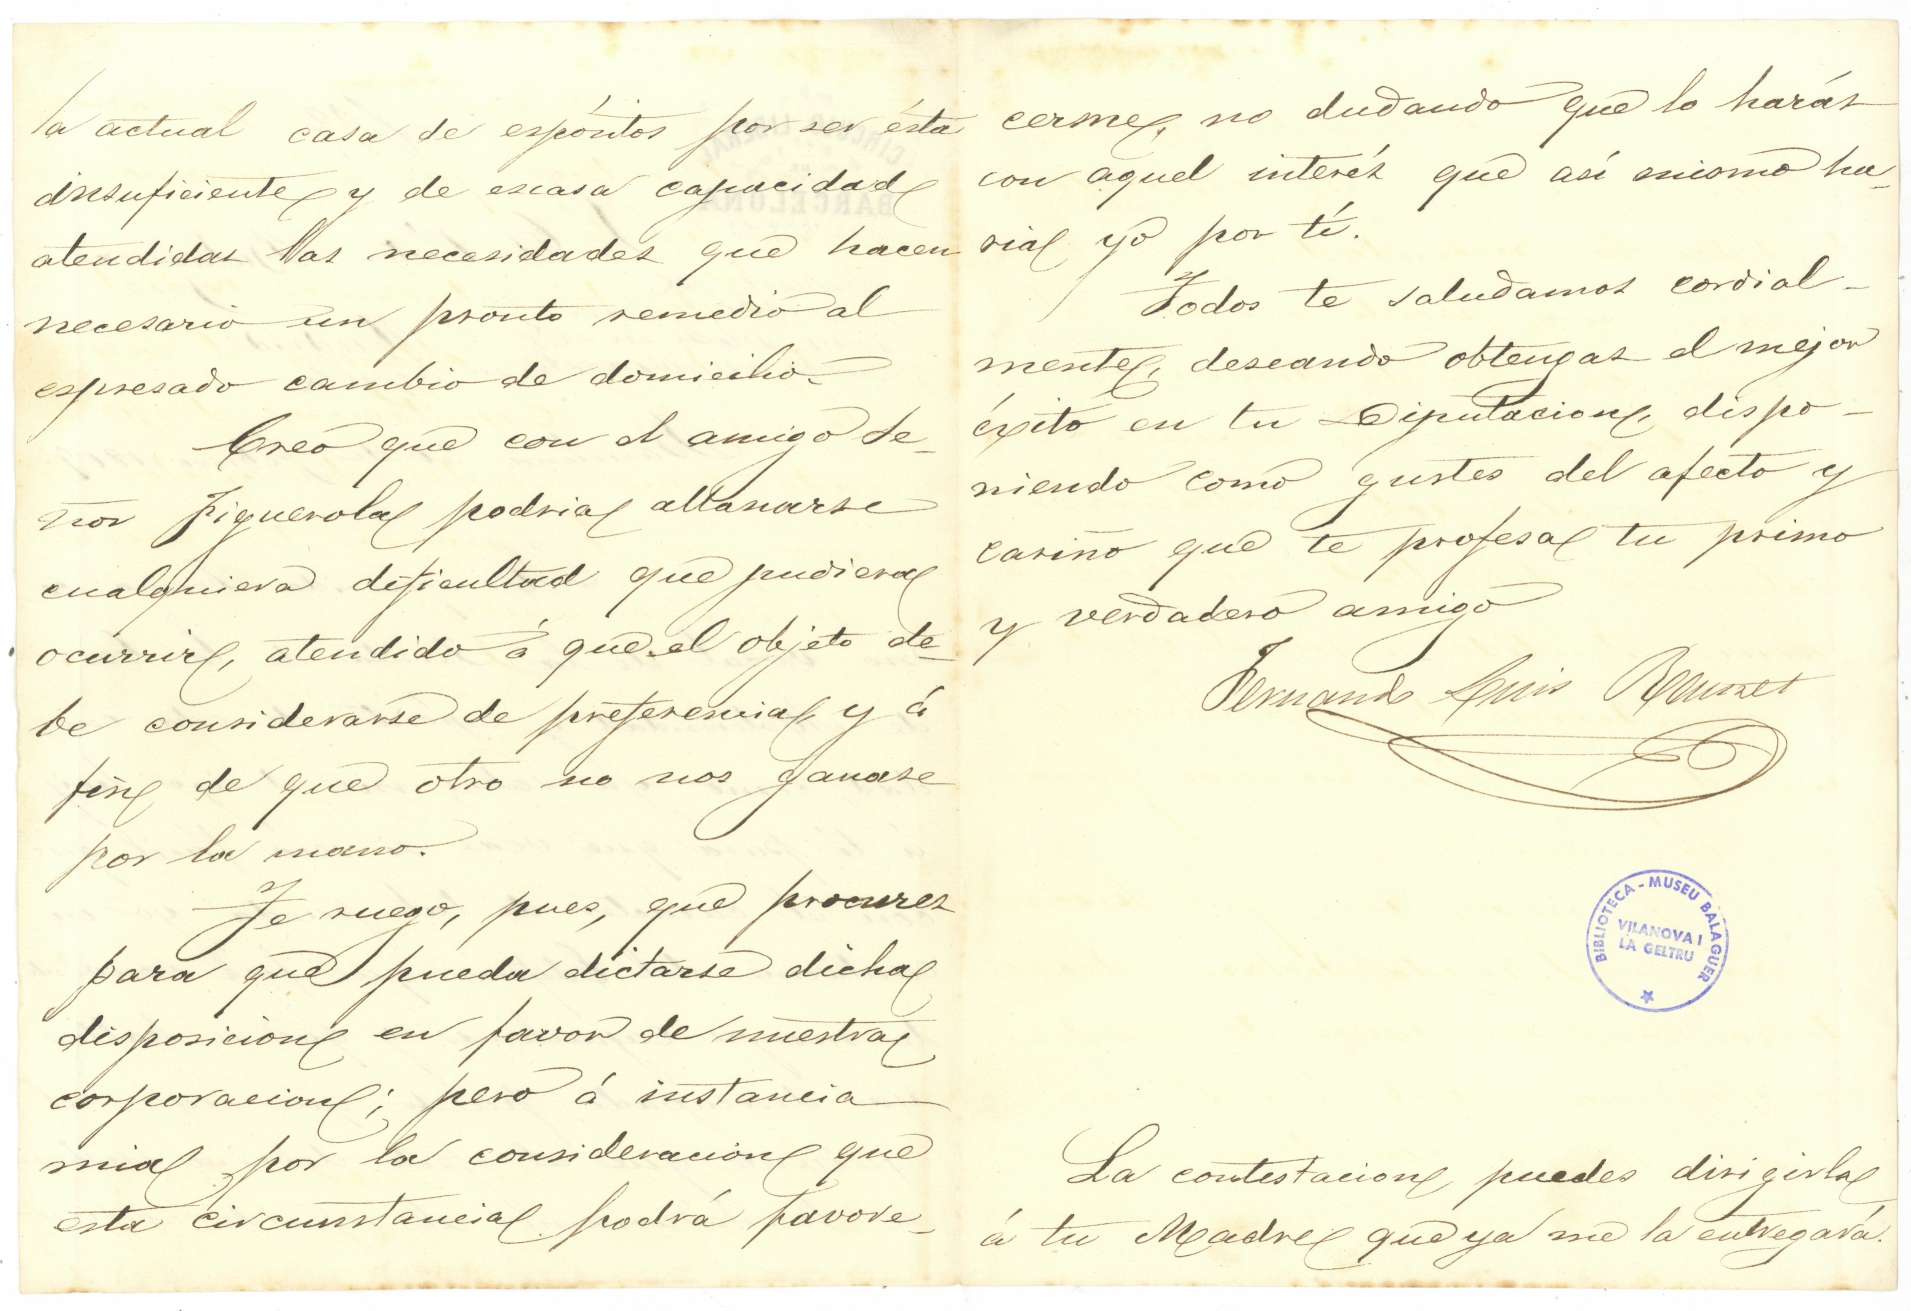 la actual casa de espósitos por ser ésta
insuficiente y de escasa capacidad
atendidas las necesidades que hacen
necesario un pronto remedio al
espresado cambio de domicilio.
Creo que con el amigo Se-
ñor Figuerola podria allanarse
cualquiera dificultad que pudiera
ocurrir, atendido á que el objeto de-
be considerarse de preferencia y á
fin de que otro no nos ganase
por la mano.
Te ruego, pues, que procures
para que pueda dictarse dicha
disposicion en favor de nuestra
corporacion; pero á instancia
mia por la consideracion que
esta circunstancia podrá favore-
cerme, no dudando que lo harás
con aquel interés que así mismo ha-
ria yo por tí.
Todos te saludamos cordial-
mente, deseando obtengas el mejor
éxito en tu Diputacion, dispo-
niendo como gustes del afecto y
cariño que te profesa tu primo
y verdadero amigo
Fernando Luis
BIBLIOTECA-MUSEU BALAGUER
VILANOVA I
LA GELTRU
La contestacion puedes dirigirla
á tu Madre que ya me la entregará.